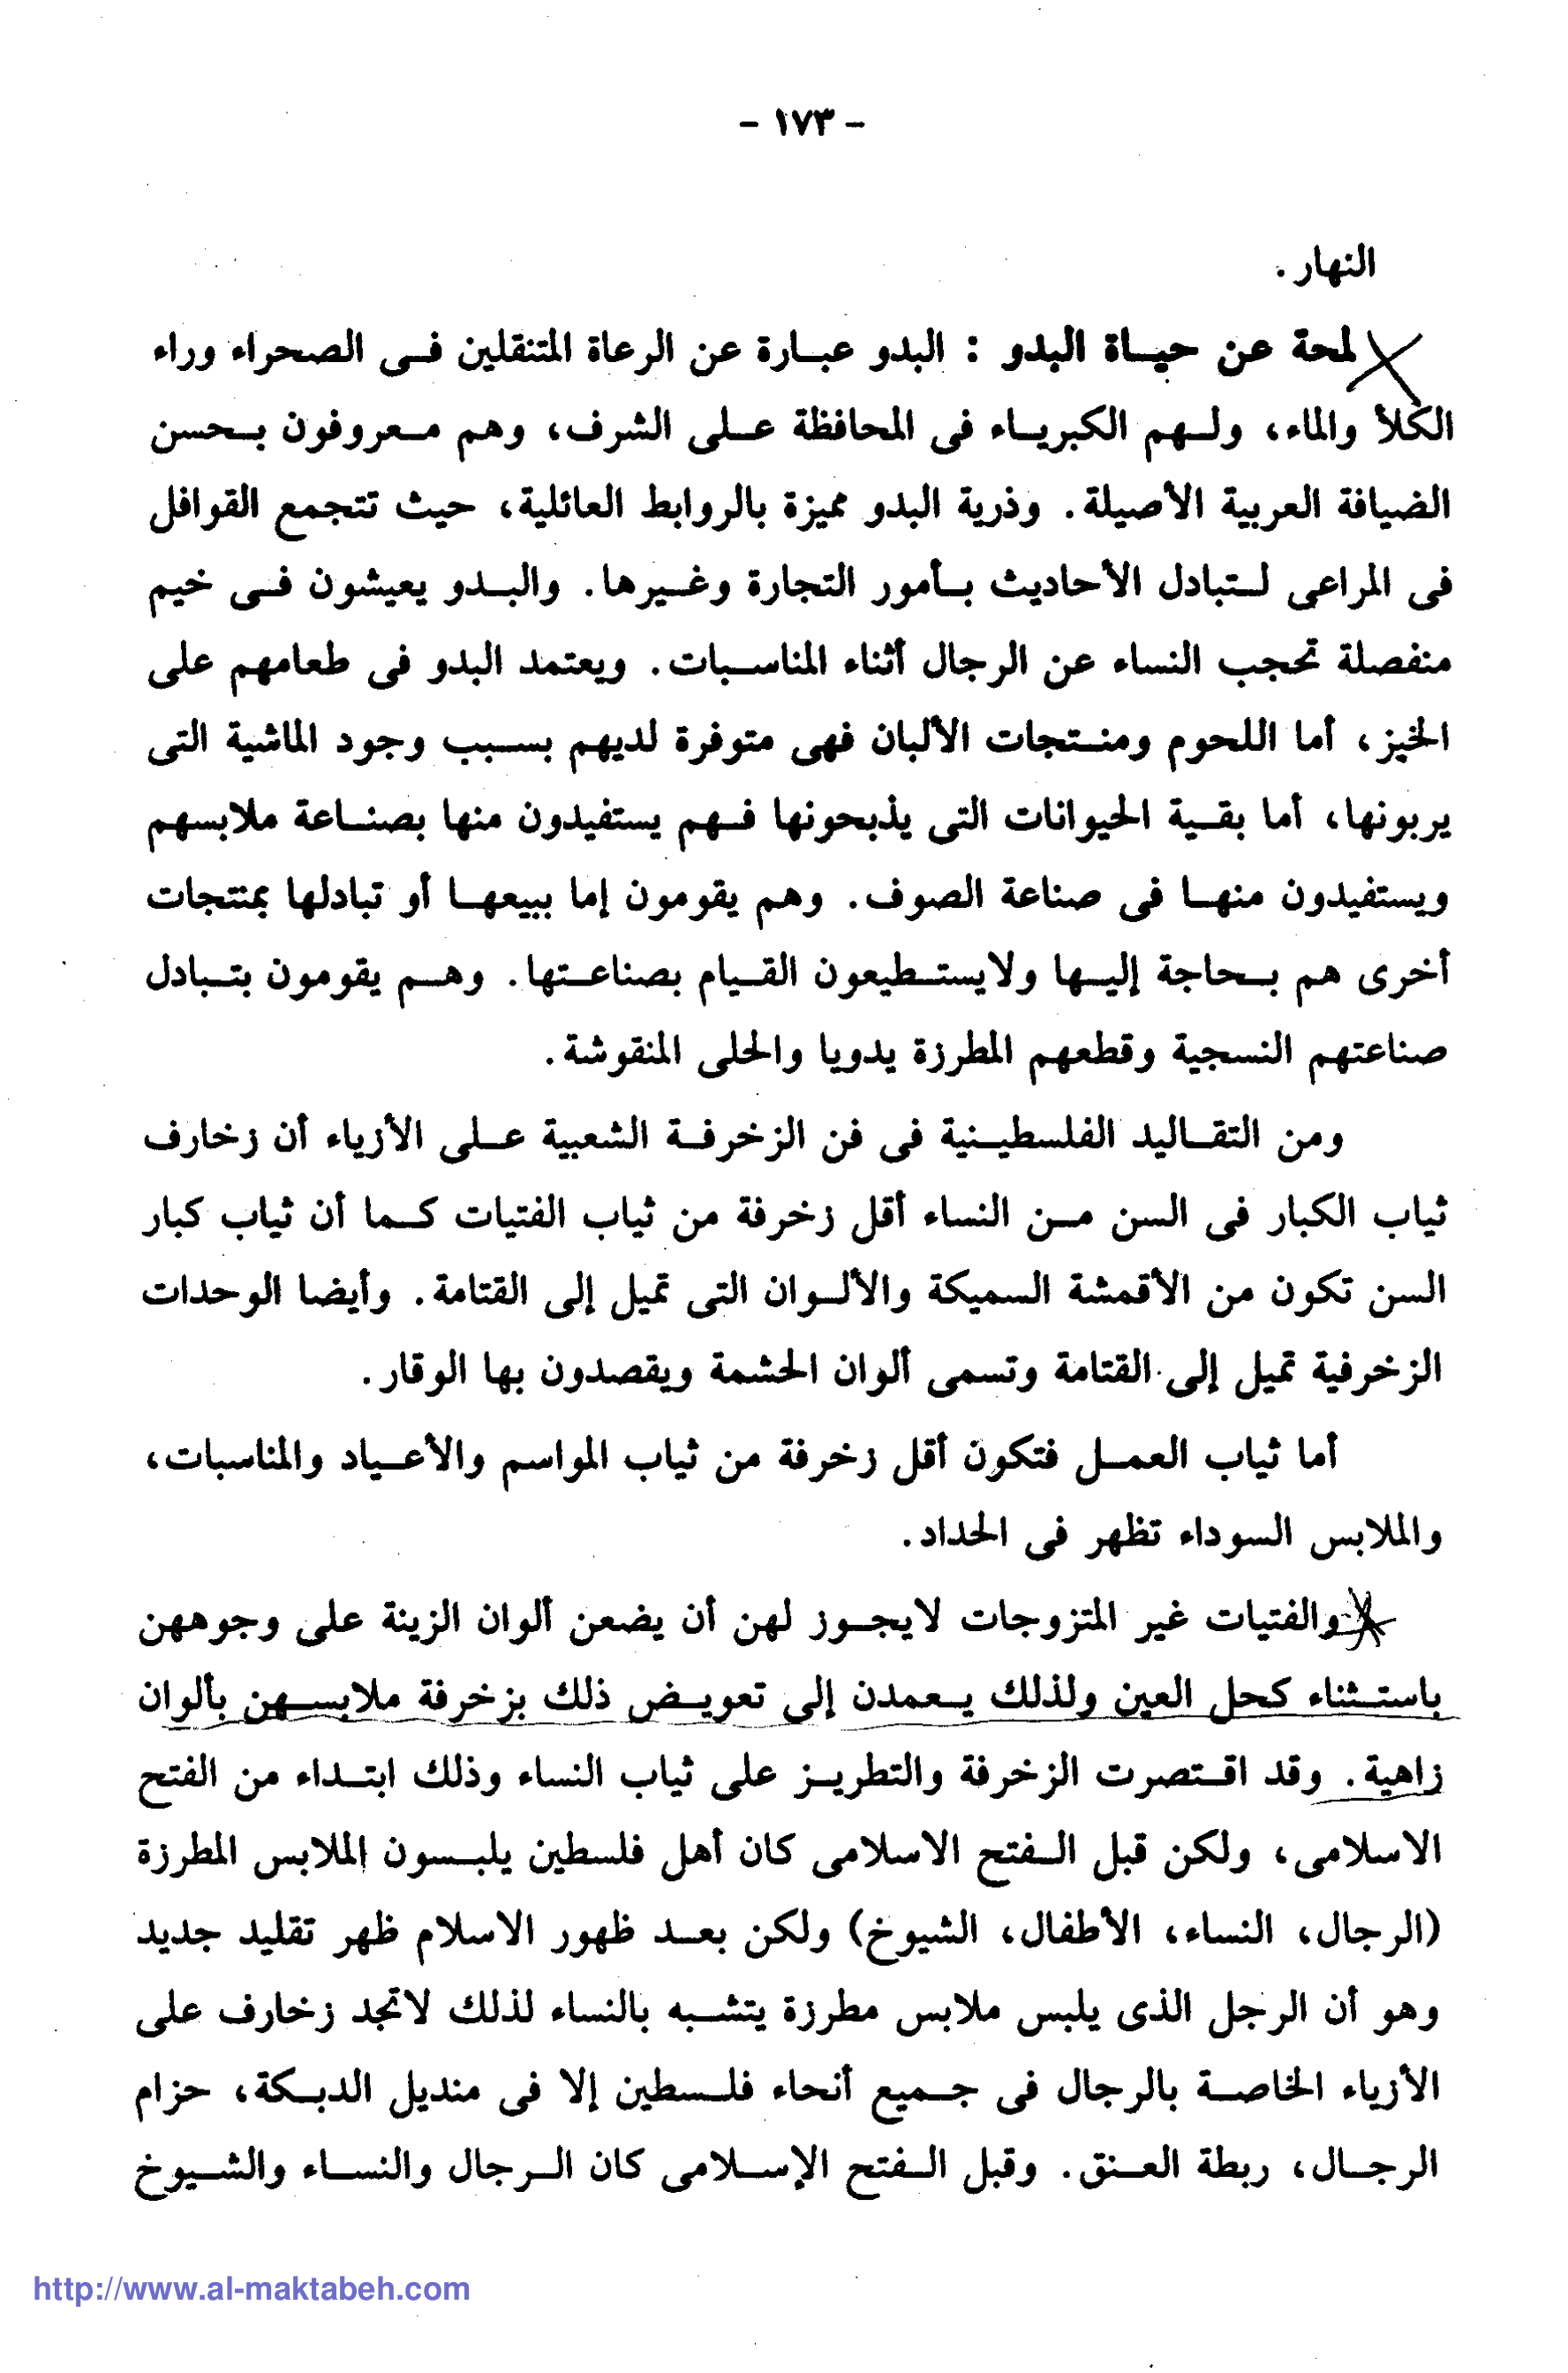 - ١٧٣ -
النهار .
لمحة عن حياة البدو : البدو عبارة عن الرعاة المتنقلين فى الصحراء وراء
الكلأ والماء، ولهم الكبرياء فى المحافظة على الشرف، وهم معروفون بحسن
الضيافة العربية الأصيلة. وذرية البدو مميزة بالروابط العائلية، حيث تتجمع القوافل
فى المراعى لتبادل الأحاديث بأمور التجارة وغيرها. والبدو يعيشون فى خيم
منفصلة تحجب النساء عن الرجال أثناء المناسبات. ويعتمد البدو فى طعامهم على
الخبز، أما اللحوم ومنتجات الألبان فهى متوفرة لديهم بسبب وجود الماشية التى
يربونها، أما بقية الحيوانات التى يذبحونها فهم يستفيدون منها بصناعة ملابسهم
ويستفيدون منها فى صناعة الصوف. وهم يقومون إما ببيعها أو تبادلها بمنتجات
أخرى هم بحاجة إليها ولايستطيعون القيام بصناعتها. وهم يقومون بتبادل
صناعتهم النسجية وقطعهم المطرزة يدويا والحلى المنقوشة.
ومن التقاليد الفلسطينية فى فن الزخرفة الشعبية على الأزياء أن زخارف
ثياب الكبار فى السن من النساء أقل زخرفة من ثياب الفتيات كما أن ثياب كبار
السن تكون من الأقمشة السميكة والألوان التى تميل إلى القتامة. وأيضا الوحدات
الزخرفية تميل إلى القتامة وتسمى ألوان الحشمة ويقصدون بها الوقار.
أما ثياب العمل فتكون أقل زخرفة من ثياب المواسم والأعياد والمناسبات،
والملابس السوداء تظهر فى الحداد.
والفتيات غير المتزوجات لايجوز لهن أن يضعن ألوان الزينة على وجوههن
باستثناء كحل العين ولذلك يعمدن إلى تعويض ذلك بزخرفة ملابسهن بألوان
زاهية. وقد اقتصرت الزخرفة والتطريز على ثياب النساء وذلك ابتداء من الفتح
الاسلامى، ولكن قبل الفتح الاسلامى كان أهل فلسطين يلبسون الملابس المطرزة
(الرجال، النساء، الأطفال، الشيوخ) ولكن بعد ظهور الاسلام ظهر تقليد جديد
وهو أن الرجل الذى يلبس ملابس مطرزة يتشبه بالنساء لذلك لاتجد زخارف على
الأزياء الخاصة بالرجال فى جميع أنحاء فلسطين إلا فى منديل الدبكة، حزام
الرجال، ربطة العنق. وقبل الفتح الإسلامى كان الرجال والنساء والشيوخ
http://www.al-maktabeh.com